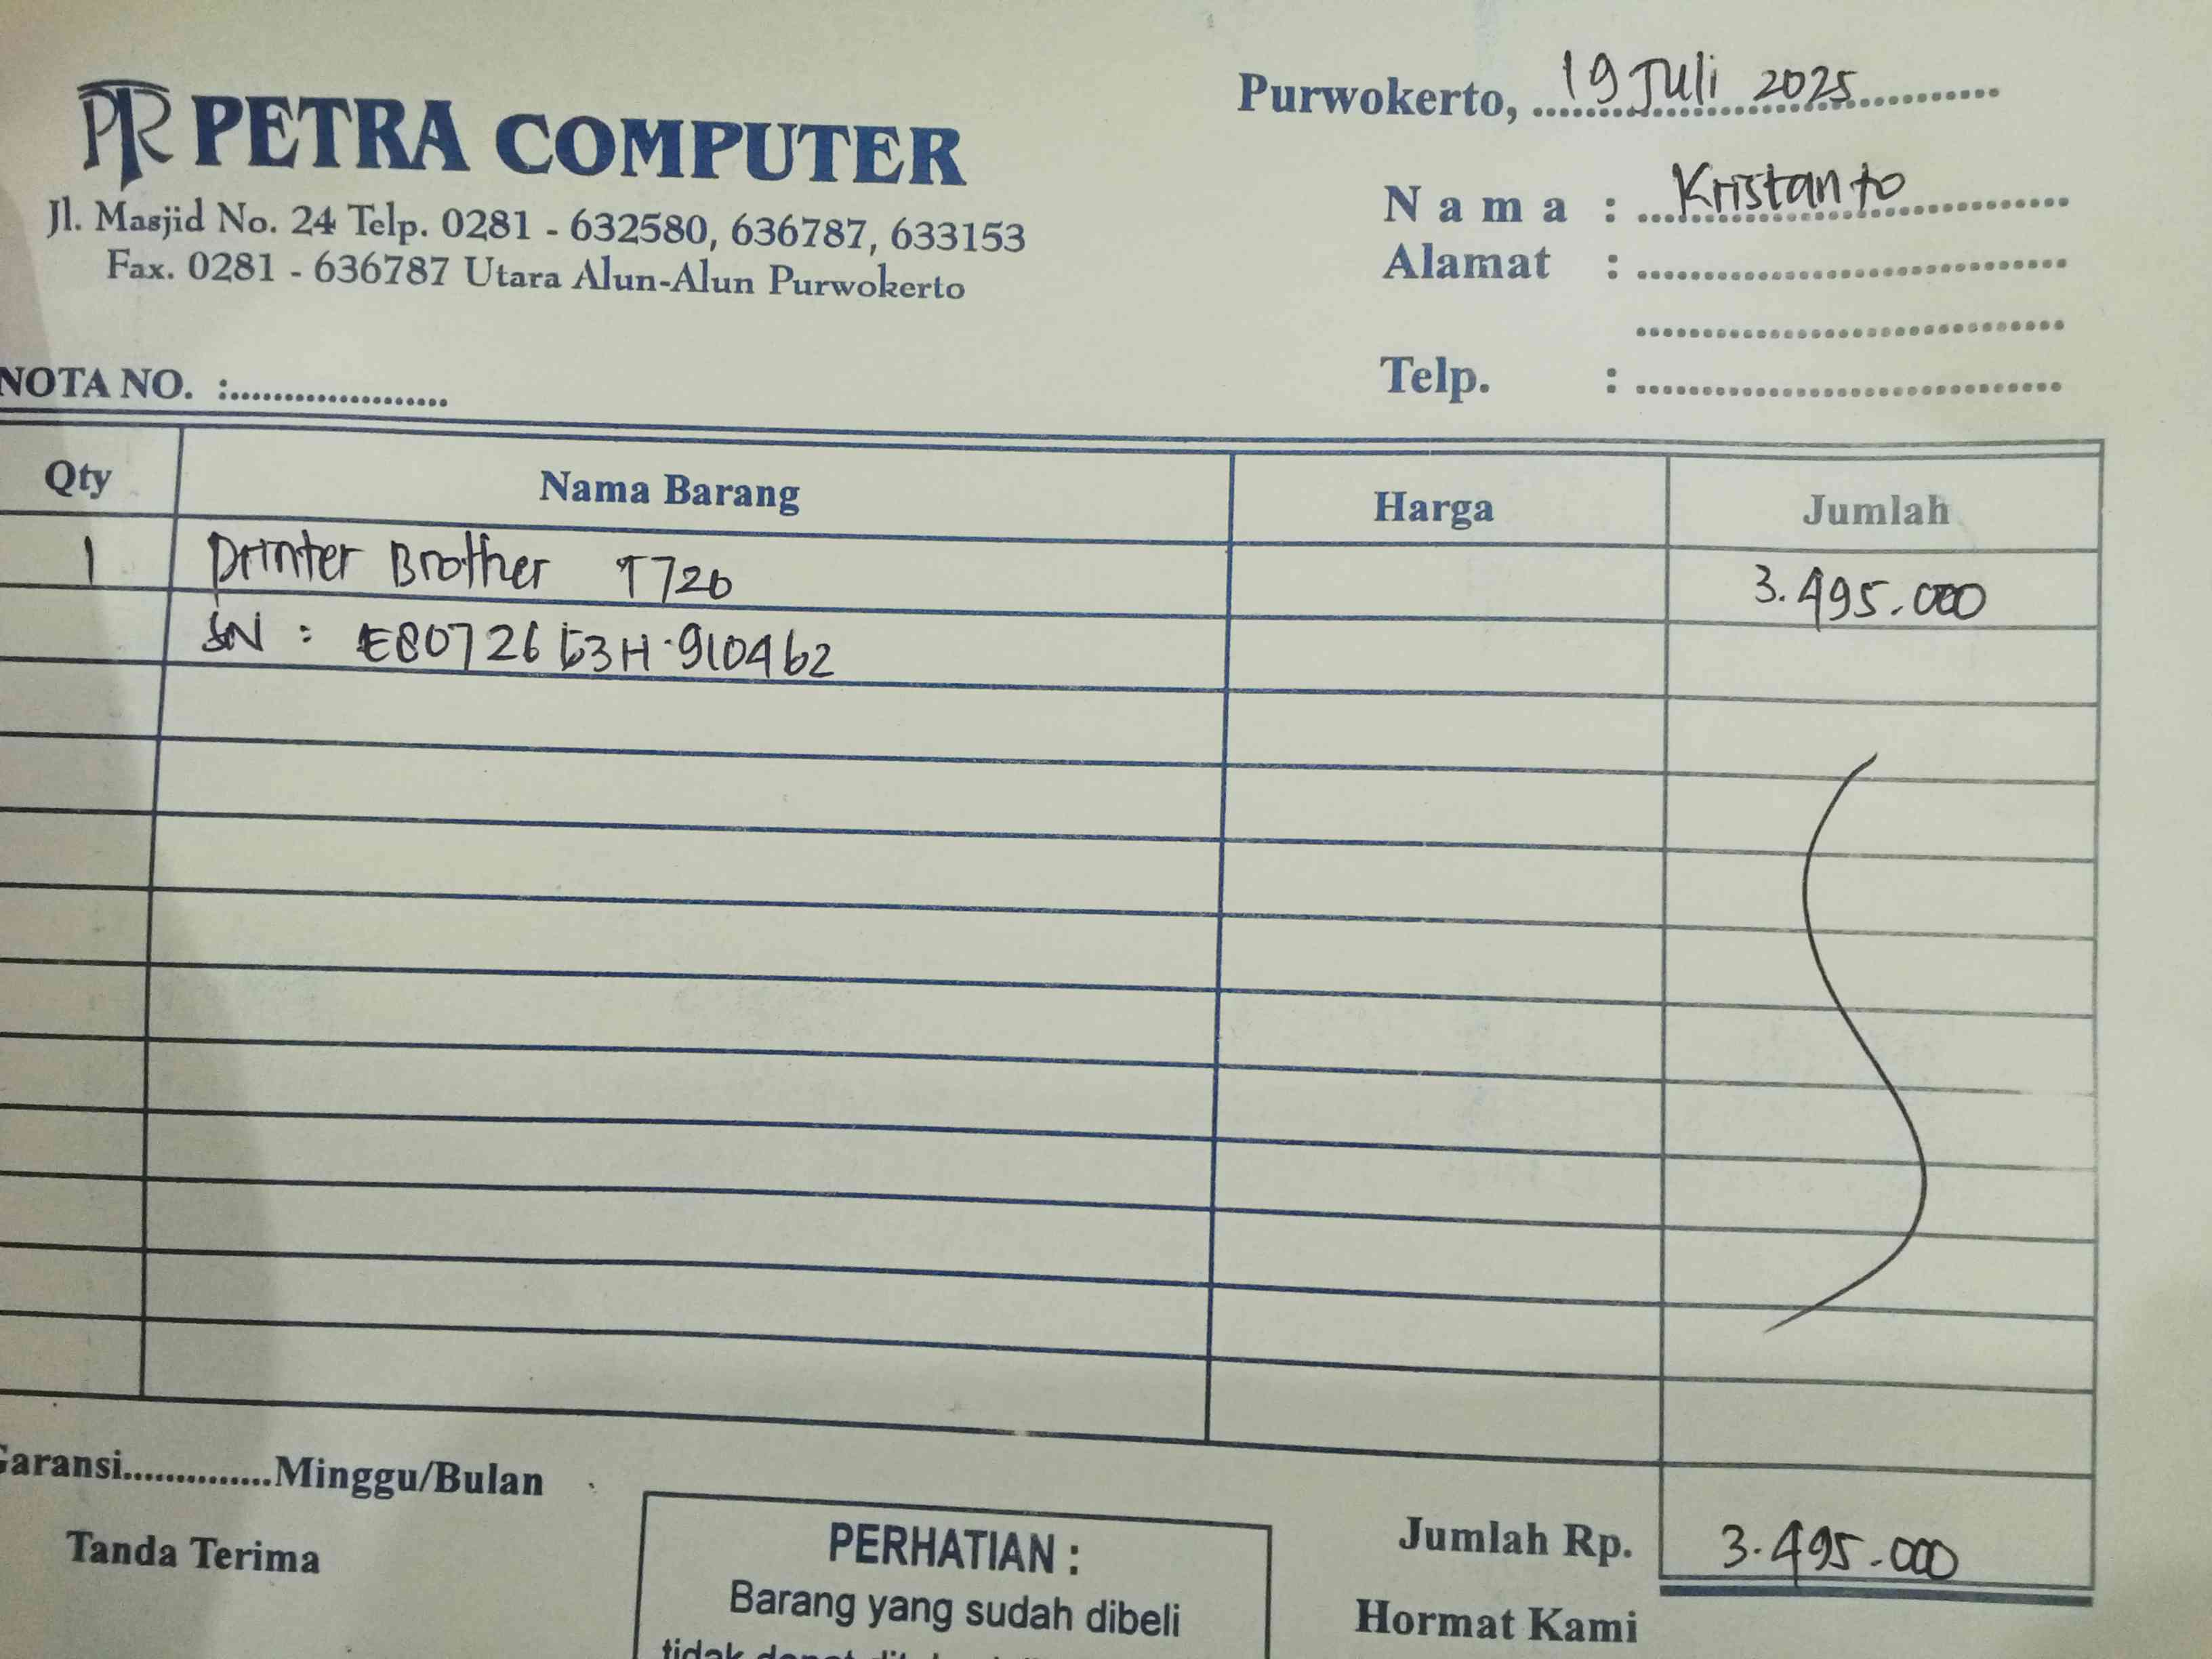 PR PETRA COMPUTER
Jl. Masjid No. 24 Telp. 0281 - 632580, 636787, 633153
Fax. 0281 - 636787 Utara Alun-Alun Purwokerto
Purwokerto, 19 Juli 2025
Nama : Kristanto
Alamat :
Telp. :
NOTA NO. :
Qty Nama Barang Harga Jumlah
1 Printer Brother T720 3.495.000
SN : E80726
Garansi..............Minggu/Bulan
Tanda Terima
PERHATIAN :
Barang yang sudah dibeli
tidak
Jumlah Rp. 3.495.000
Hormat Kami